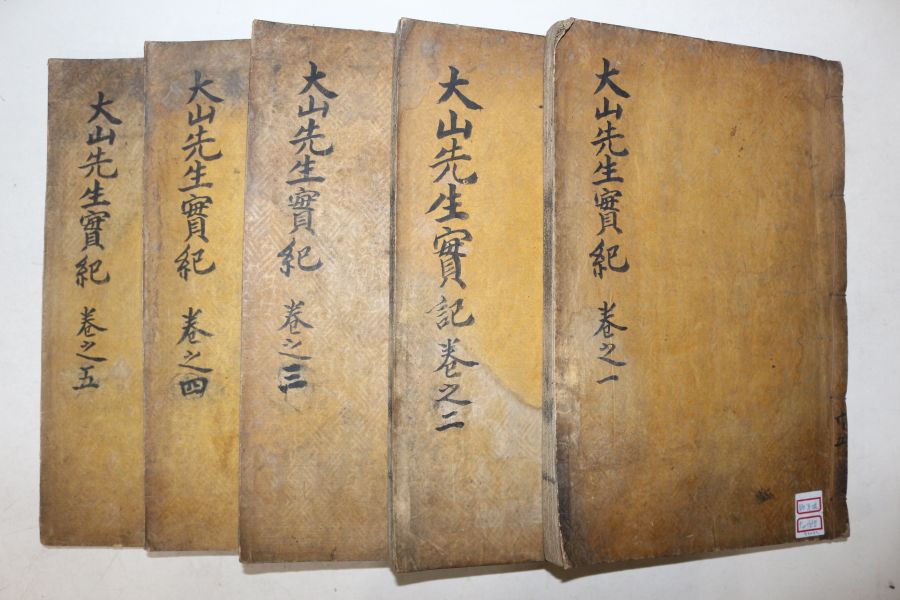 大山先生實紀 卷之一
大山先生實記 卷之二
大山先生實紀 卷之三
大山先生實紀 卷之四
大山先生實紀 卷之五